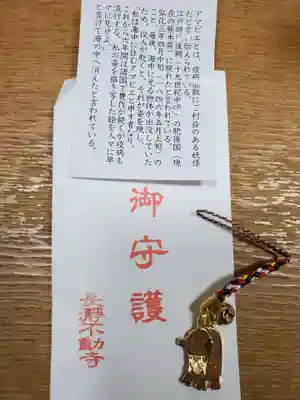 アマビエとは、疫病退散にご利益のある妖怪
だと言い伝えられている。
江戸時代後期(十九世紀中頃)の肥後国(現
在の熊本県)に現れたと言われている。
弘化三年四月中旬(一八四六年五月上旬)の
こと、毎夜、海中に光る物体が出没していた
ため、役人が赴くと、それが姿を現し、
「私は海中に住むアマビエと申す者なり。
これから六年間は諸国で豊作が続くが疫病も
流行する。私の姿を描き写した絵を人々に早
々に見せよ。」
と告げて海の中へ消えたと言われている。
御守護
長瀞不動寺